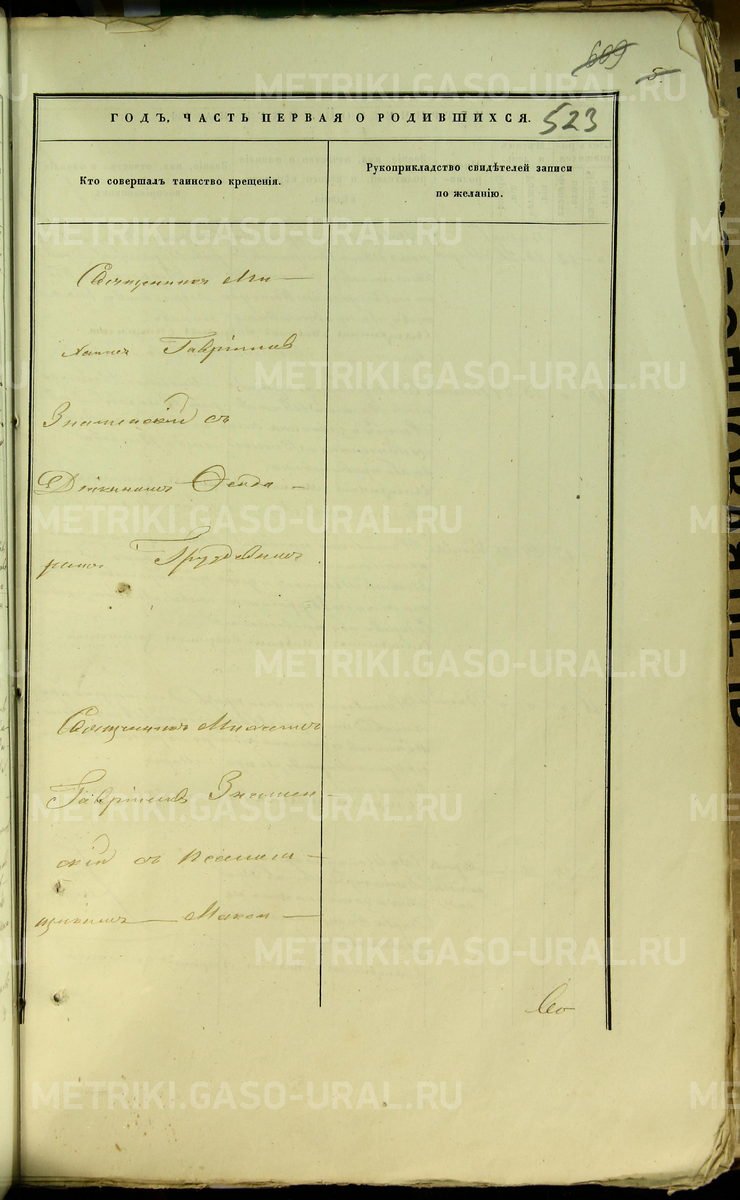 669
5.
ГОДЪ, ЧАСТЬ ПЕРВАЯ О РОДИВШИХСЯ. 523
Кто совершалъ таинство крещенія.
Рукоприкладство свидѣтелей записи
по желанію.
Священникъ Ми-
хаилъ Гавріиловъ
Знаменскій съ
Дьякономъ
Груздевымъ
Священникъ
Гавріиловъ Знамен-
скій съ псаломщ
METRIKI.GASO-URAL.RU